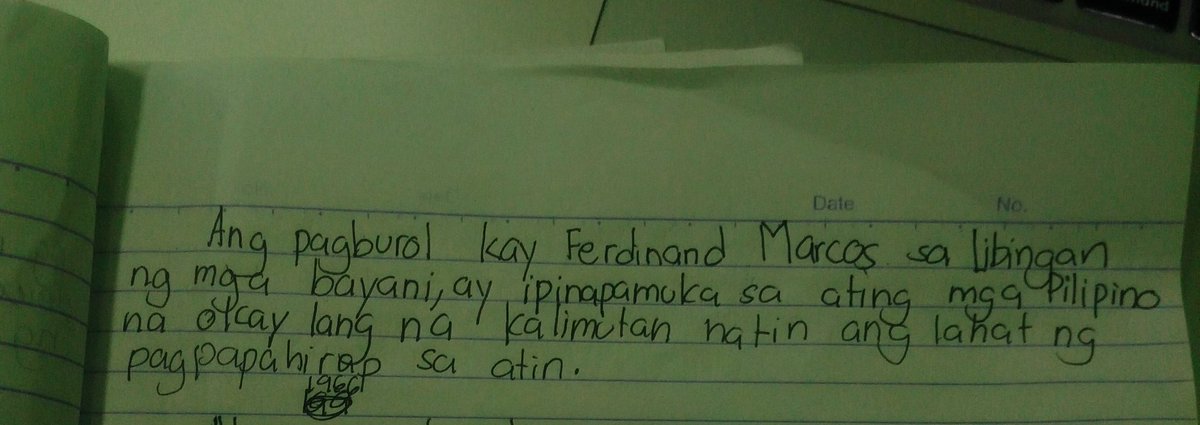 Date No.
Ang pagburol kay Ferdinand Marcos sa libingan
ng mga bayani, ay ipinapamuka sa ating mga Pilipino
na okay lang na kalimutan natin ang lahat ng
pagpapahirap sa atin.